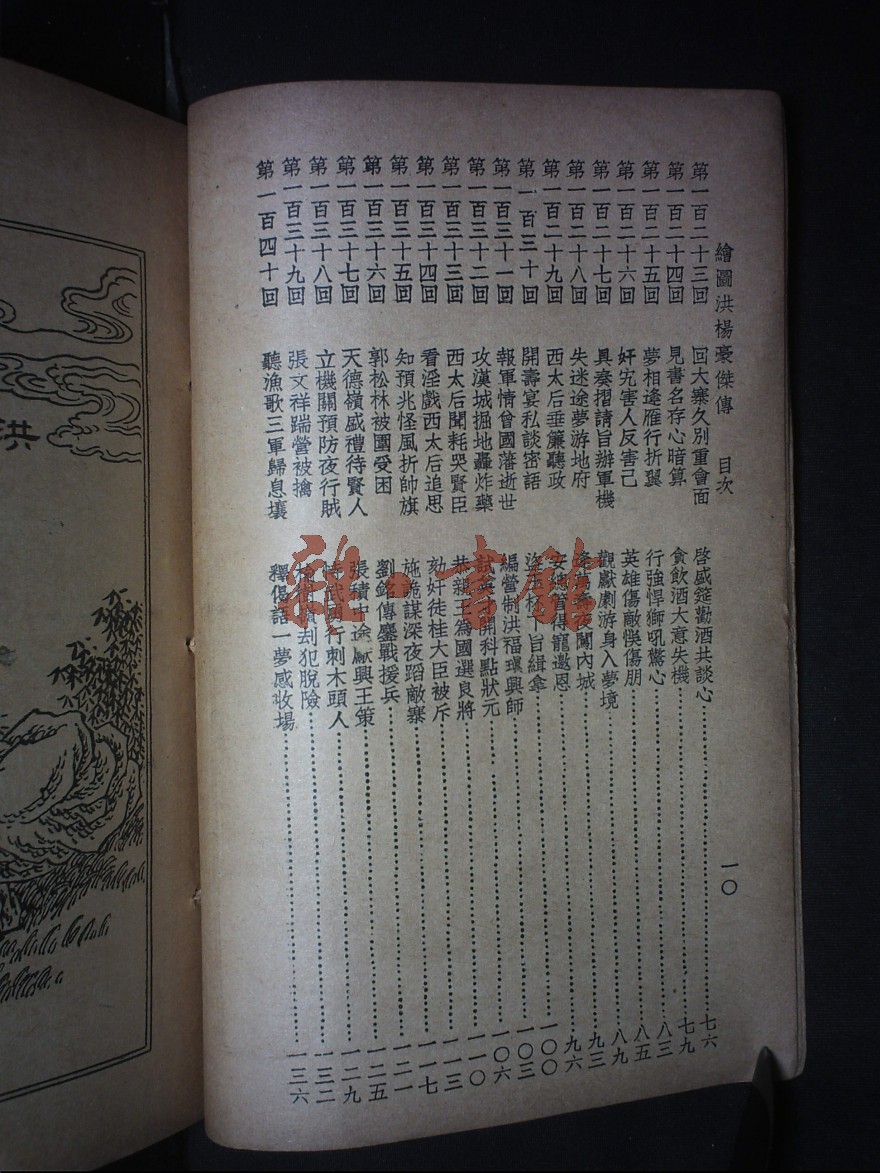 繪圖洪楊豪傑傳 目次 一〇
第一百二十三回 回大寨久別重會面 啓盛筵勸酒共談心 七六
第一百二十四回 見書名存心暗算 貪飲酒大意失機 七九
第一百二十五回 夢相逢雁行折翼 行強悍獅吼驚心 八三
第一百二十六回 奸宄害人反害己 英雄傷敵悞傷朋 八五
第一百二十七回 具奏摺請旨辦軍機 觀獻劇游身入夢境 八九
第一百二十八回 失迷途夢游地府 夜鬧內城 九三
第一百二十九回 西太后垂簾聽政 安 得寵邀恩 九六
第一百三十回 開壽宴私談密語 盜玉杯下旨緝拿 一〇〇
第一百三十一回 報軍情曾國藩逝世 編營制洪福瑱興師 一〇三
第一百三十二回 攻漢城掘地轟炸藥 試 開科點狀元 一〇六
第一百三十三回 西太后聞耗哭賢臣 恭親王爲國選良將 一一〇
第一百三十四回 看淫戲西太后追思 劾奸徒桂大臣被斥 一一三
第一百三十五回 知預兆怪風折帥旗 施詭謀深夜蹈敵寨 一一七
第一百三十六回 郭松林被圍受困 劉銘傳鏖戰援兵 一二一
第一百三十七回 天德嶺盛禮待賢人 張積中途獻興王策 一二五
第一百三十八回 立機關預防夜行賊 恃武 行刺木頭人 一二九
第一百三十九回 張文祥踹營被擒 刦犯脫險 一三二
第一百四十回 聽漁歌三軍歸息壤 釋偈語一夢感收場 一三六
雜·書館
洪